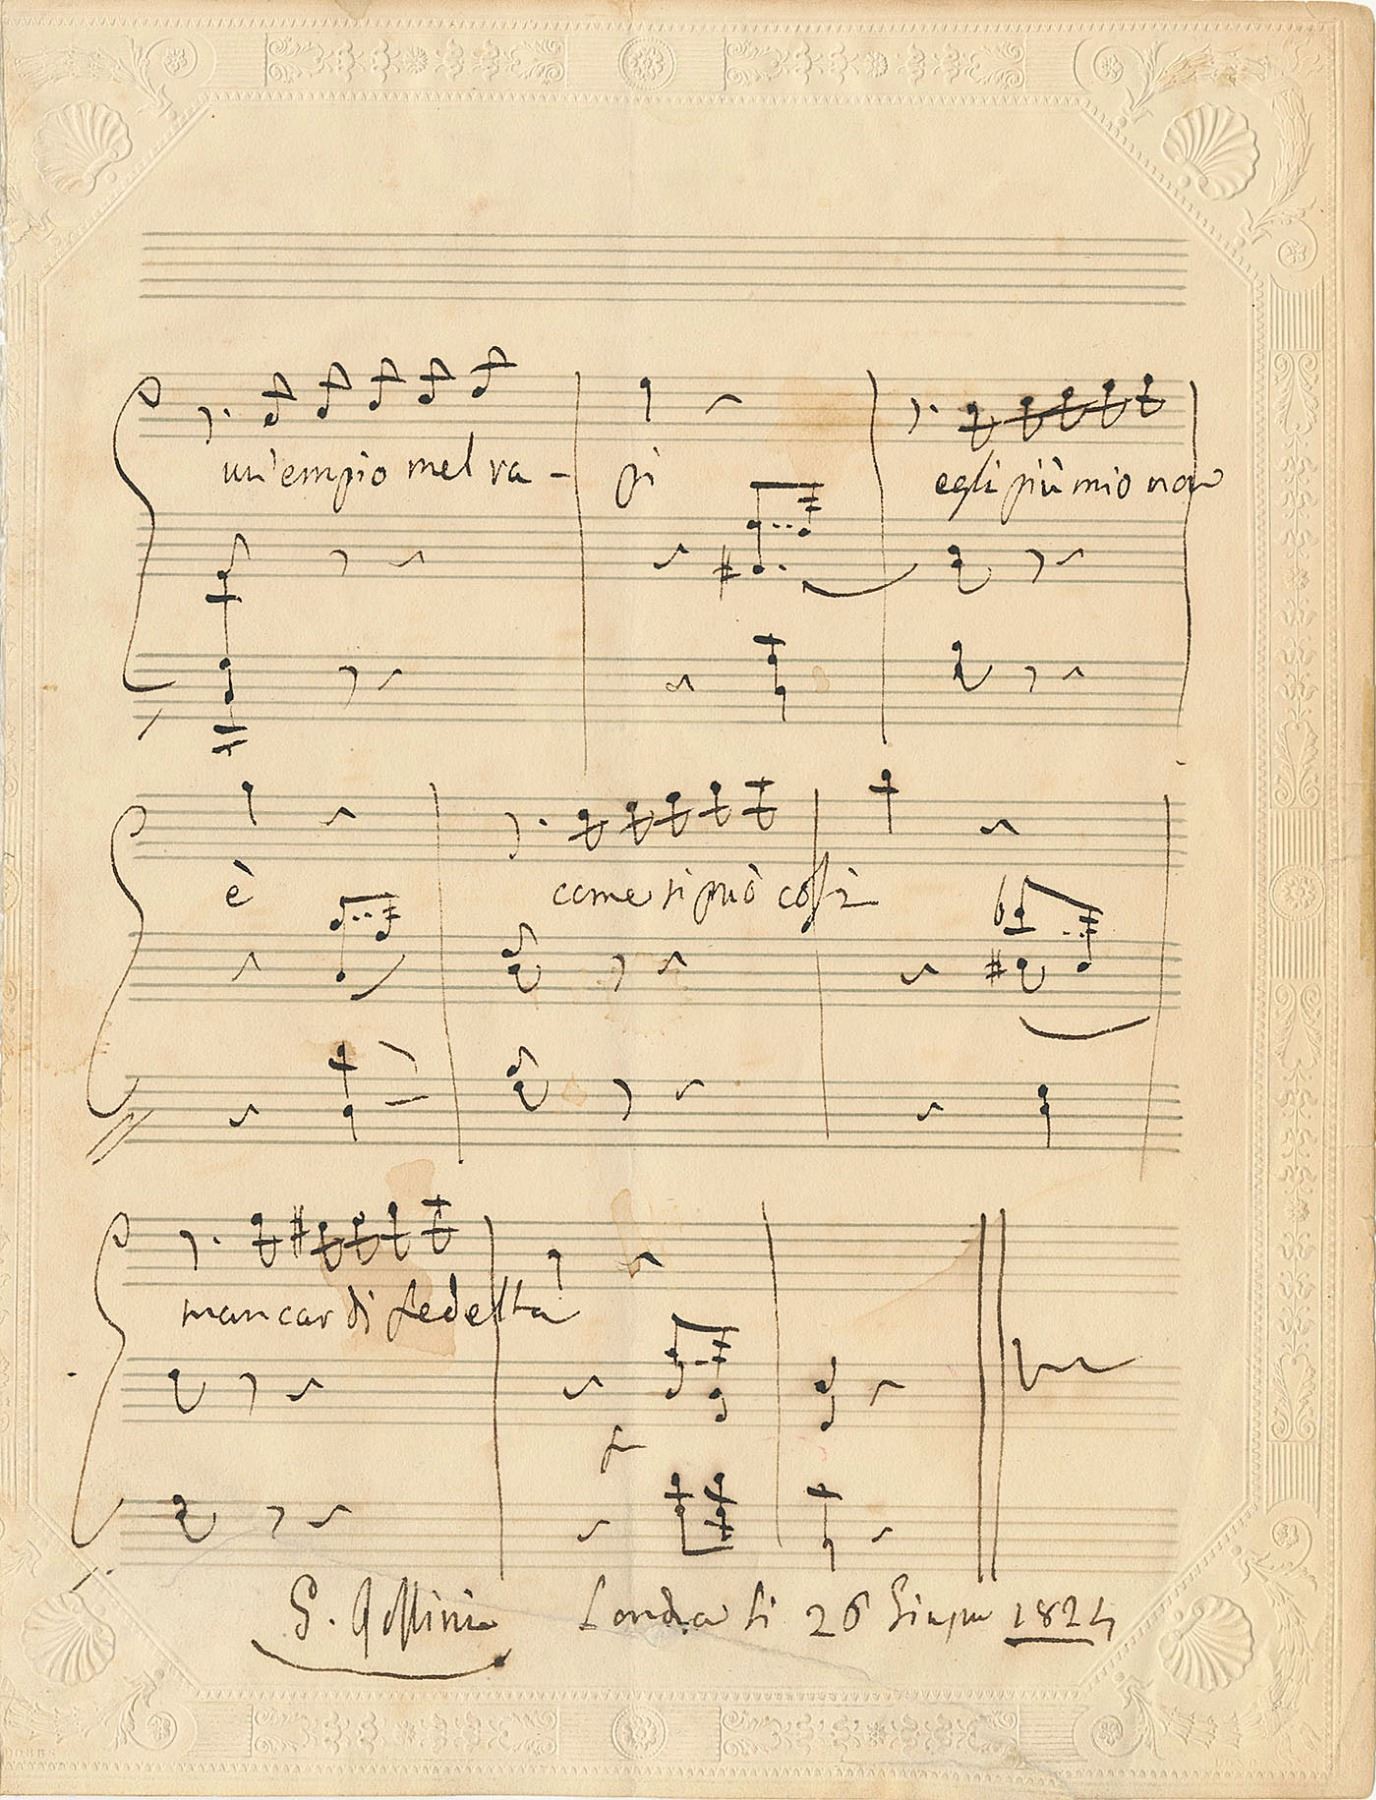 un'empio mel ra - pì egli più mio non
è come si può così
mancar di fedeltà
G. Rossini Londra li 26 Giugno 1824